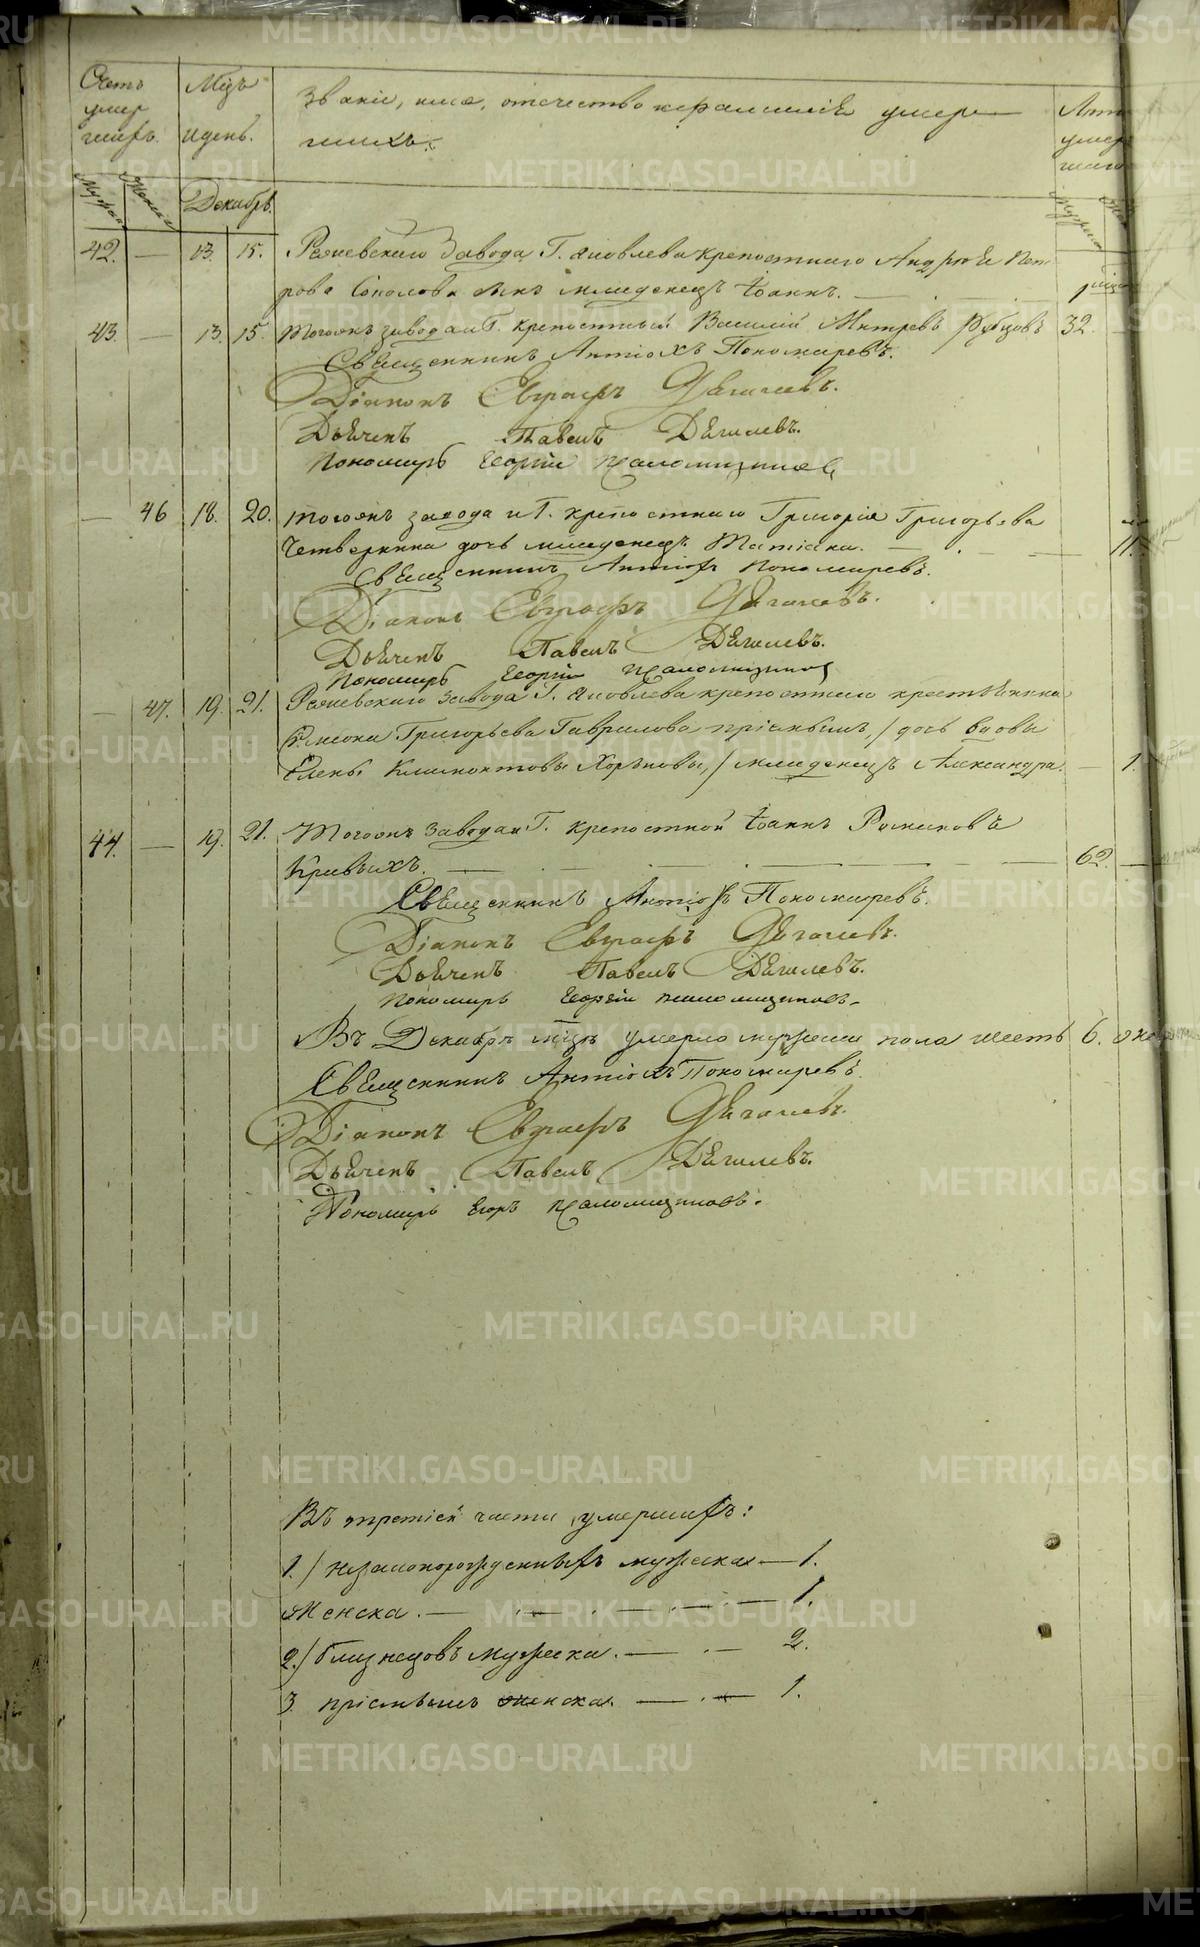 Счетъ умер шихъ.
Мцъ и день.
Званіе, имя, отечество и фамилія умер
шихъ.
Лѣт умер шаго
Мужск Женск
Декабрь.
42. — 13. 15. Режевскаго Завода Г. Яковлева крепостнаго Андрея Пет
рова сынъ младенецъ Іоаннъ. —
43. — 13. 15. Тогоже завода и Г. крепостный Василій Рубцовъ 32.
Священникъ Антіохъ Пономаревъ.
Діаконъ Евграфъ Дягилевъ.
Дьячекъ Павелъ Дягилевъ.
Пономарь Георгій
— 46 18. 20. Тогоже завода и Г. крепостнаго Григорія Григорьева
Четверкина дочь младенецъ Татіана. — 11.
Священникъ Антіохъ Пономаревъ.
Діаконъ Евграфъ Дягилевъ.
Дьячекъ Павелъ Дягилевъ.
Пономарь Георгій
— 47. 19. 21. Режевскаго Завода Г. Яковлева крепостнаго крестьянина
Григорьева Гаврилова пріемышъ, / дочь вдовы
Елены / младенецъ Александра. — 1.
44. — 19. 21. Тогоже Завода и Г. крепостной Іоаннъ
Кривыхъ. — 62. —
Священникъ Антіохъ Пономаревъ.
Діаконъ Евграфъ Дягилевъ.
Дьячекъ Павелъ Дягилевъ.
Пономарь Георгій
Въ Декабрѣ мцѣ умерло мужеска пола шесть 6.
Священникъ Антіохъ Пономаревъ.
Діаконъ Евграфъ Дягилевъ.
Дьячекъ Павелъ Дягилевъ.
Пономарь Егоръ
Въ третіей части умершихъ:
1./ незаконорожденныхъ мужеска — 1.
Женска. — 1.
2./ близнецовъ мужеска. — 2.
3. пріемышъ женска. — 1.
METRIKI.GASO-URAL.RU